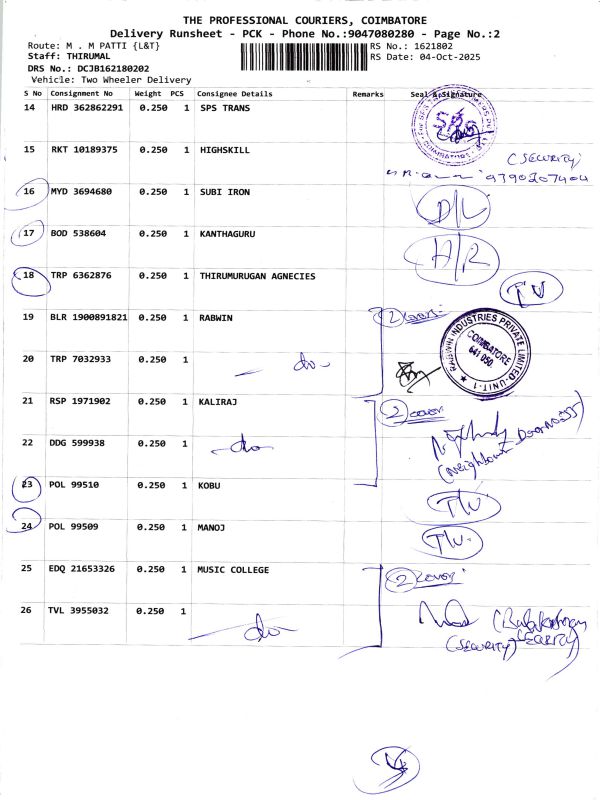 THE PROFESSIONAL COURIERS, COIMBATORE
Delivery Runsheet - PCK - Phone No.:9047080280 - Page No.:2
Route: M . M PATTI {L&T}
RS No.: 1621802
Staff: THIRUMAL
RS Date: 04-Oct-2025
DRS No.: DCJB162180202
Vehicle: Two Wheeler Delivery
S No Consignment No Weight PCS Consignee Details Remarks Seal & Signature
14 HRD 362862291 0.250 1 SPS TRANS
COIMBATORE
15 RKT 10189375 0.250 1 HIGHSKILL
(SECURITY)
16 MYD 3694680 0.250 1 SUBI IRON
D/L
17 BOD 538604 0.250 1 KANTHAGURU
H/R
18 TRP 6362876 0.250 1 THIRUMURUGAN AGNECIES
T V
19 BLR 1900891821 0.250 1 RABWIN
2 cover
RABWIN INDUSTRIES PRIVATE LIMITED-UNIT-1
COIMBATORE
641 050.
20 TRP 7032933 0.250 1
do
21 RSP 1971902 0.250 1 KALIRAJ
2 cover
22 DDG 599938 0.250 1
do
(Neighbour Door No:
23 POL 99510 0.250 1 KOBU
T/V.
24 POL 99509 0.250 1 MANOJ
T/V.
25 EDQ 21653326 0.250 1 MUSIC COLLEGE
2 cover
26 TVL 3955032 0.250 1
do
(SECURITY)